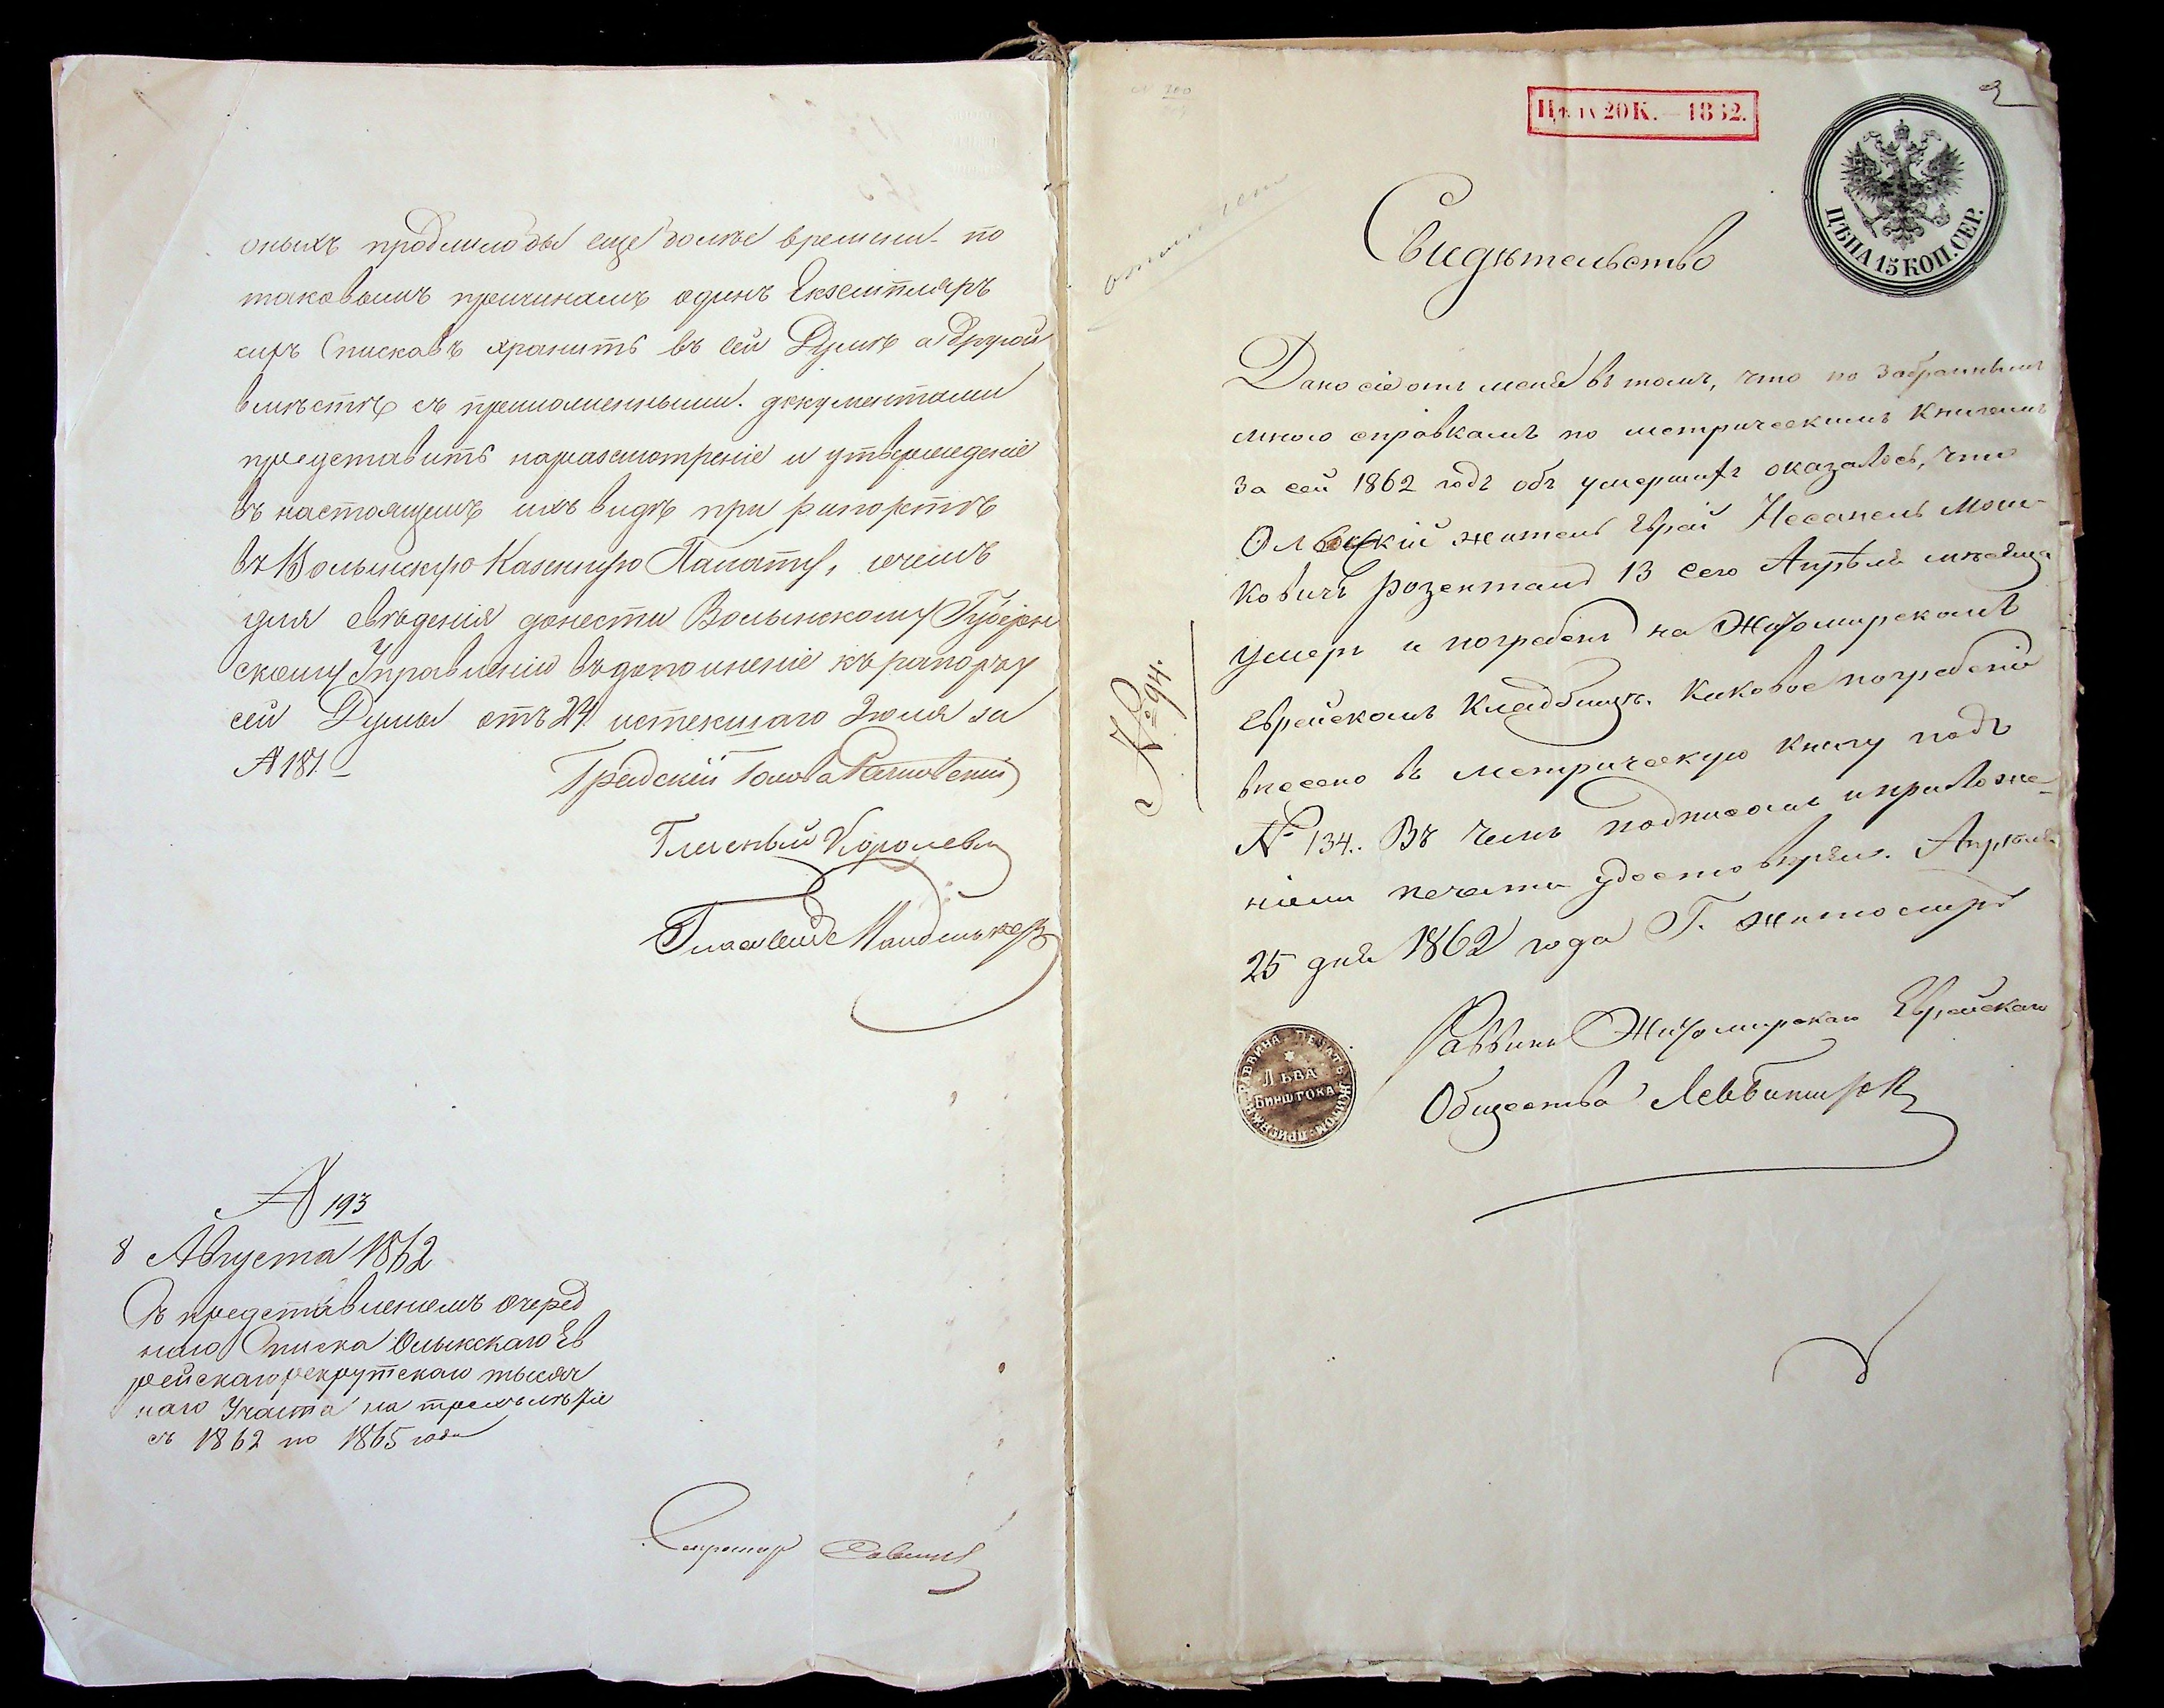 оныхъ продлилобы еще долѣе времени. по
таковымъ причинамъ одинъ Екземпляръ
сихъ Списковъ хранить въ сей Думѣ а другой
вмѣстѣ съ приложенными документами
представить наразсмотреніе и утвержденіе
въ настоящемъ ихъ видѣ при рапортѣ
въ Волынскую Казенную Палату, очемъ
для свѣденія донести Волынскому Губерн
скому Правленію въ дополненіе къ рапорту
сей Думы отъ 24 истекшаго Іюля за
№ 181.
Градскій Голова
Гласный Королев
Гласный
№ 193
8 Августа 1862
Съ представленіемъ очеред
наго Списка Олыкскаго Ев
рейскаго рекрутскаго тысяч
наго Участка на трехълѣтіе
съ 1862 по 1865 года
Секретарь
2
Цѣна 20 К. — 1862.
ЦѢНА 15 КОП. СЕР.
Свидѣтельство
Дано сіе отъ меня въ томъ, что по забраннымъ
мною справкамъ по метрическимъ Книгамъ
за сей 1862 годъ объ умершихъ оказалось, что
Олыкскій житель Еврей Несанель Мош-
ковичъ Розенталь 13 сего Апрѣля мѣсяца
умеръ и погребенъ на Житомирскомъ
Еврейскомъ Кладбищѣ. Каковое погребеніе
внесено въ метрическую Книгу подъ
№ 134. Въ чемъ подписомъ и приложе-
ніемъ печати удостовѣряю. Апрѣля
25 дня 1862 года Г. Житомиръ
№ 94.
Раввинъ Житомирскаго Еврейскаго
Общества Левъ Бинштокъ
ПЕЧАТЬ ЖИТОМ: ПРИСЯЖ: РАВВИНА
ЛЬВА
БИНШТОКА